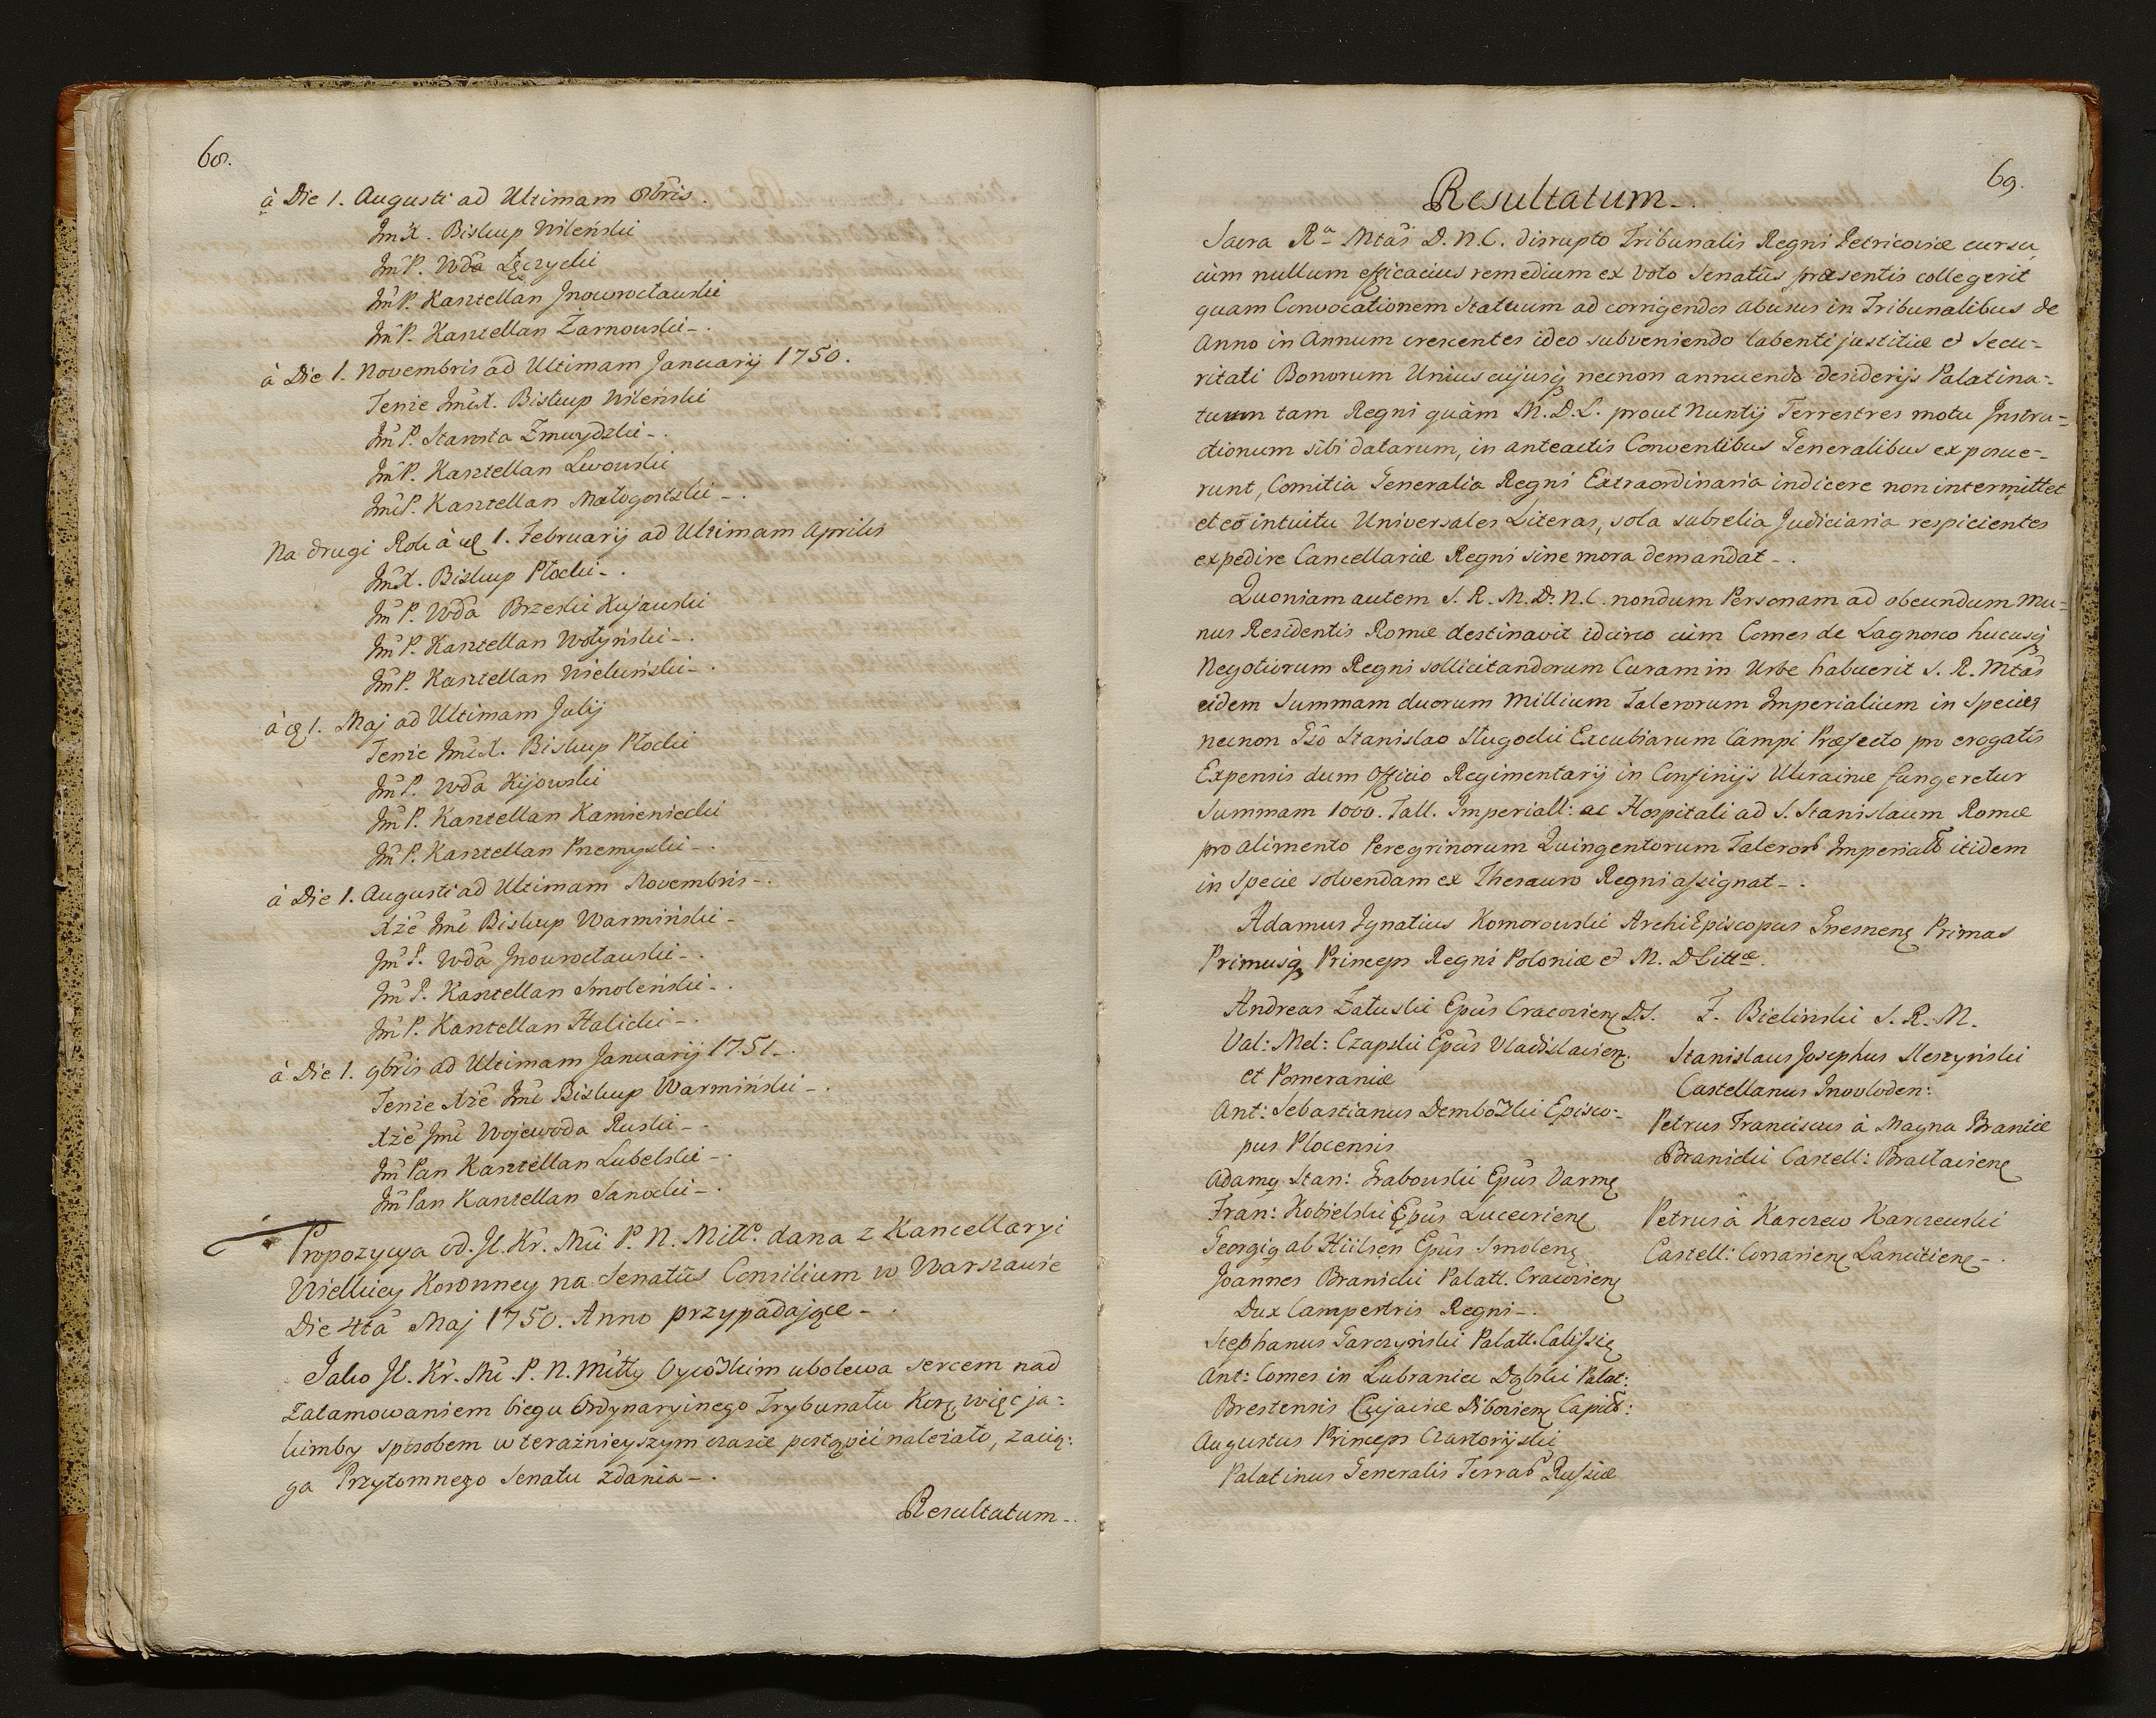 68.
à Die 1. Augusti ad Ultimam 8bris.
JmX. Biskup Wileński
JmP. Wda Łęczycki
JmP. Kasztellan Jnowrocławski
JmP. Kasztellan Żarnowski_.
à Die 1. Novembris ad Ultimam Januarij 1750.
Tenże JmćX. Biskup Wileński
JmP. Starosta Zmuydzki_.
JmP. Kasztellan Lwowski
JmćP. Kasztellan Małogostski_.
Na drugi Rok à 1. Februarij ad Ultimam Aprilis
JmćX. Biskup Płocki_.
JmP. Wda Brzeski Kujawski
JmP. Kasztellan Wołyński_.
JmP. Kasztellan Wieluński_.
à 1. Maj ad Ultimam Julij
Tenże JmćX. Biskup Płocki
JmP. Wda Kijowski
JmP. Kasztellan Kamieniecki
JmP. Kasztellan Przemyski_.
à Die 1. Augusti ad Ultimam Novembris_.
Xżē Jmć Biskup Warmiński_
JmP. Wda Jnowrocławski_.
JmP. Kasztellan Smoleński_.
JmP. Kasztellan Halicki_.
à Die 1. 9bris ad Ultimam Januarij 1751_.
Tenże Xżē Jmć Biskup Warmiński_.
Xżē Jmć Wojewoda Ruski_.
Jm Pan Kasztellan Lubelski_.
Jm Pan Kasztellan Sanocki_.
Propozycya od. Jl. Kr. Mći P. N. Miłło dana z Kancellaryi
Wielkiey Koronney na Senatûs Consilium w Warszawie
Die 4tâ Maj 1750. Anno przypadające_.
Jako Jl. Kr. Mć. P. N. Miłły Oycowskim ubolewa sercem nad
zatamowaniem biegu Ordynaryinego Trybunału Kor, więc ja=
kimby sposobem w teraźnieyszym czasie postąpić należało, zacią:
ga Przytomnego Senatu zdania_.
Resultatum_.
69.
Resultatum_.
Sacra Ra Mtas D. N. C. disrupto Tribunalis Regni Petricoviæ cursu,
cùm nullum efficacius remedium ex voto Senatûs præsentis collegerit
quam Convocationem Statuum ad corrigendos abusus in Tribunalibus de
Anno in Annum crescentes ideo subveniendo labenti justitiæ et Secu=
ritati Bonorum Unius cujusq necnon annuendo desiderijs Palatina=
tuum tam Regni quàm M. D. L. prout Nuntij Terrestres motu Jnstru=
ctionum sibi datarum, in anteactis Conventibus Generalibus exposue=
runt, Comitia Generalia Regni Extraordinaria indicere non intermittet
et eo intuitu Universales Literas, sola subselia Judiciaria respicientes
expedire Cancellariæ Regni sine mora demandat_.
Quoniam autem S. R. M. D. N. C. nondum Personam ad obeundum Mu=
nus Residentis Romæ destinavit idcirco cùm Comes de Lagnasco hucusq
Negotiorum Regni sollicitandorum Curam in Urbe habuerit S. R. Mtas
eidem Summam duorum Millium Talerorum Imperialium in Specie
necnon Gso Stanislao Długocki Excubiarum Campi Præfecto pro erogatis
Expensis dum Officio Regimentarij in Confinijs Ukrainæ fungeretur
Summam 1000. Tall. Imperiall: ac Hospitali ad S. Stanislaum Romæ
pro alimento Peregrinorum Quingentorum Taleror Imperial itidem
in Specie solvendam ex Thesauro Regni assignat_.
Adamus Jgnatius Komorowski ArchiEpiscopus Gnesnen Primas
Primusq Princeps Regni Poloniæ et M. D Littæ.
Andreas Załuski Epus Cracovien D.S.
Val: Mel: Czapski Epus Vladislavien.
et Pomeraniæ
Ant: Sebastianus Dembowski Episco=
pus Plocensis
Adamq Stan: Grabowski Epus Varm
Fran: Kobielski Epus Luceorien
Georgiq ab Hülsen Epus Smolen
Joannes Branicki Palatt. Cracovien
Dux Campestris Regni_.
Stephanus Garczyński Palatt. Calissie
Ant: Comes in Lubraniec Dąbski Palat:
Brestensis Cujaviæ Dibovien Capit:
Augustus Princeps Czartorijski
Palatinus Generalis Terrar Russiæ
F. Bieliński S. R. M.
Stanislaus Josephus Leszyński
Castellanus Inovloden:
Petrus Franciscus à Magna Branice
Branicki Castell: Braclavien
Petrus à Karczew Karczewski
Castell: Conarien Lancitien_.